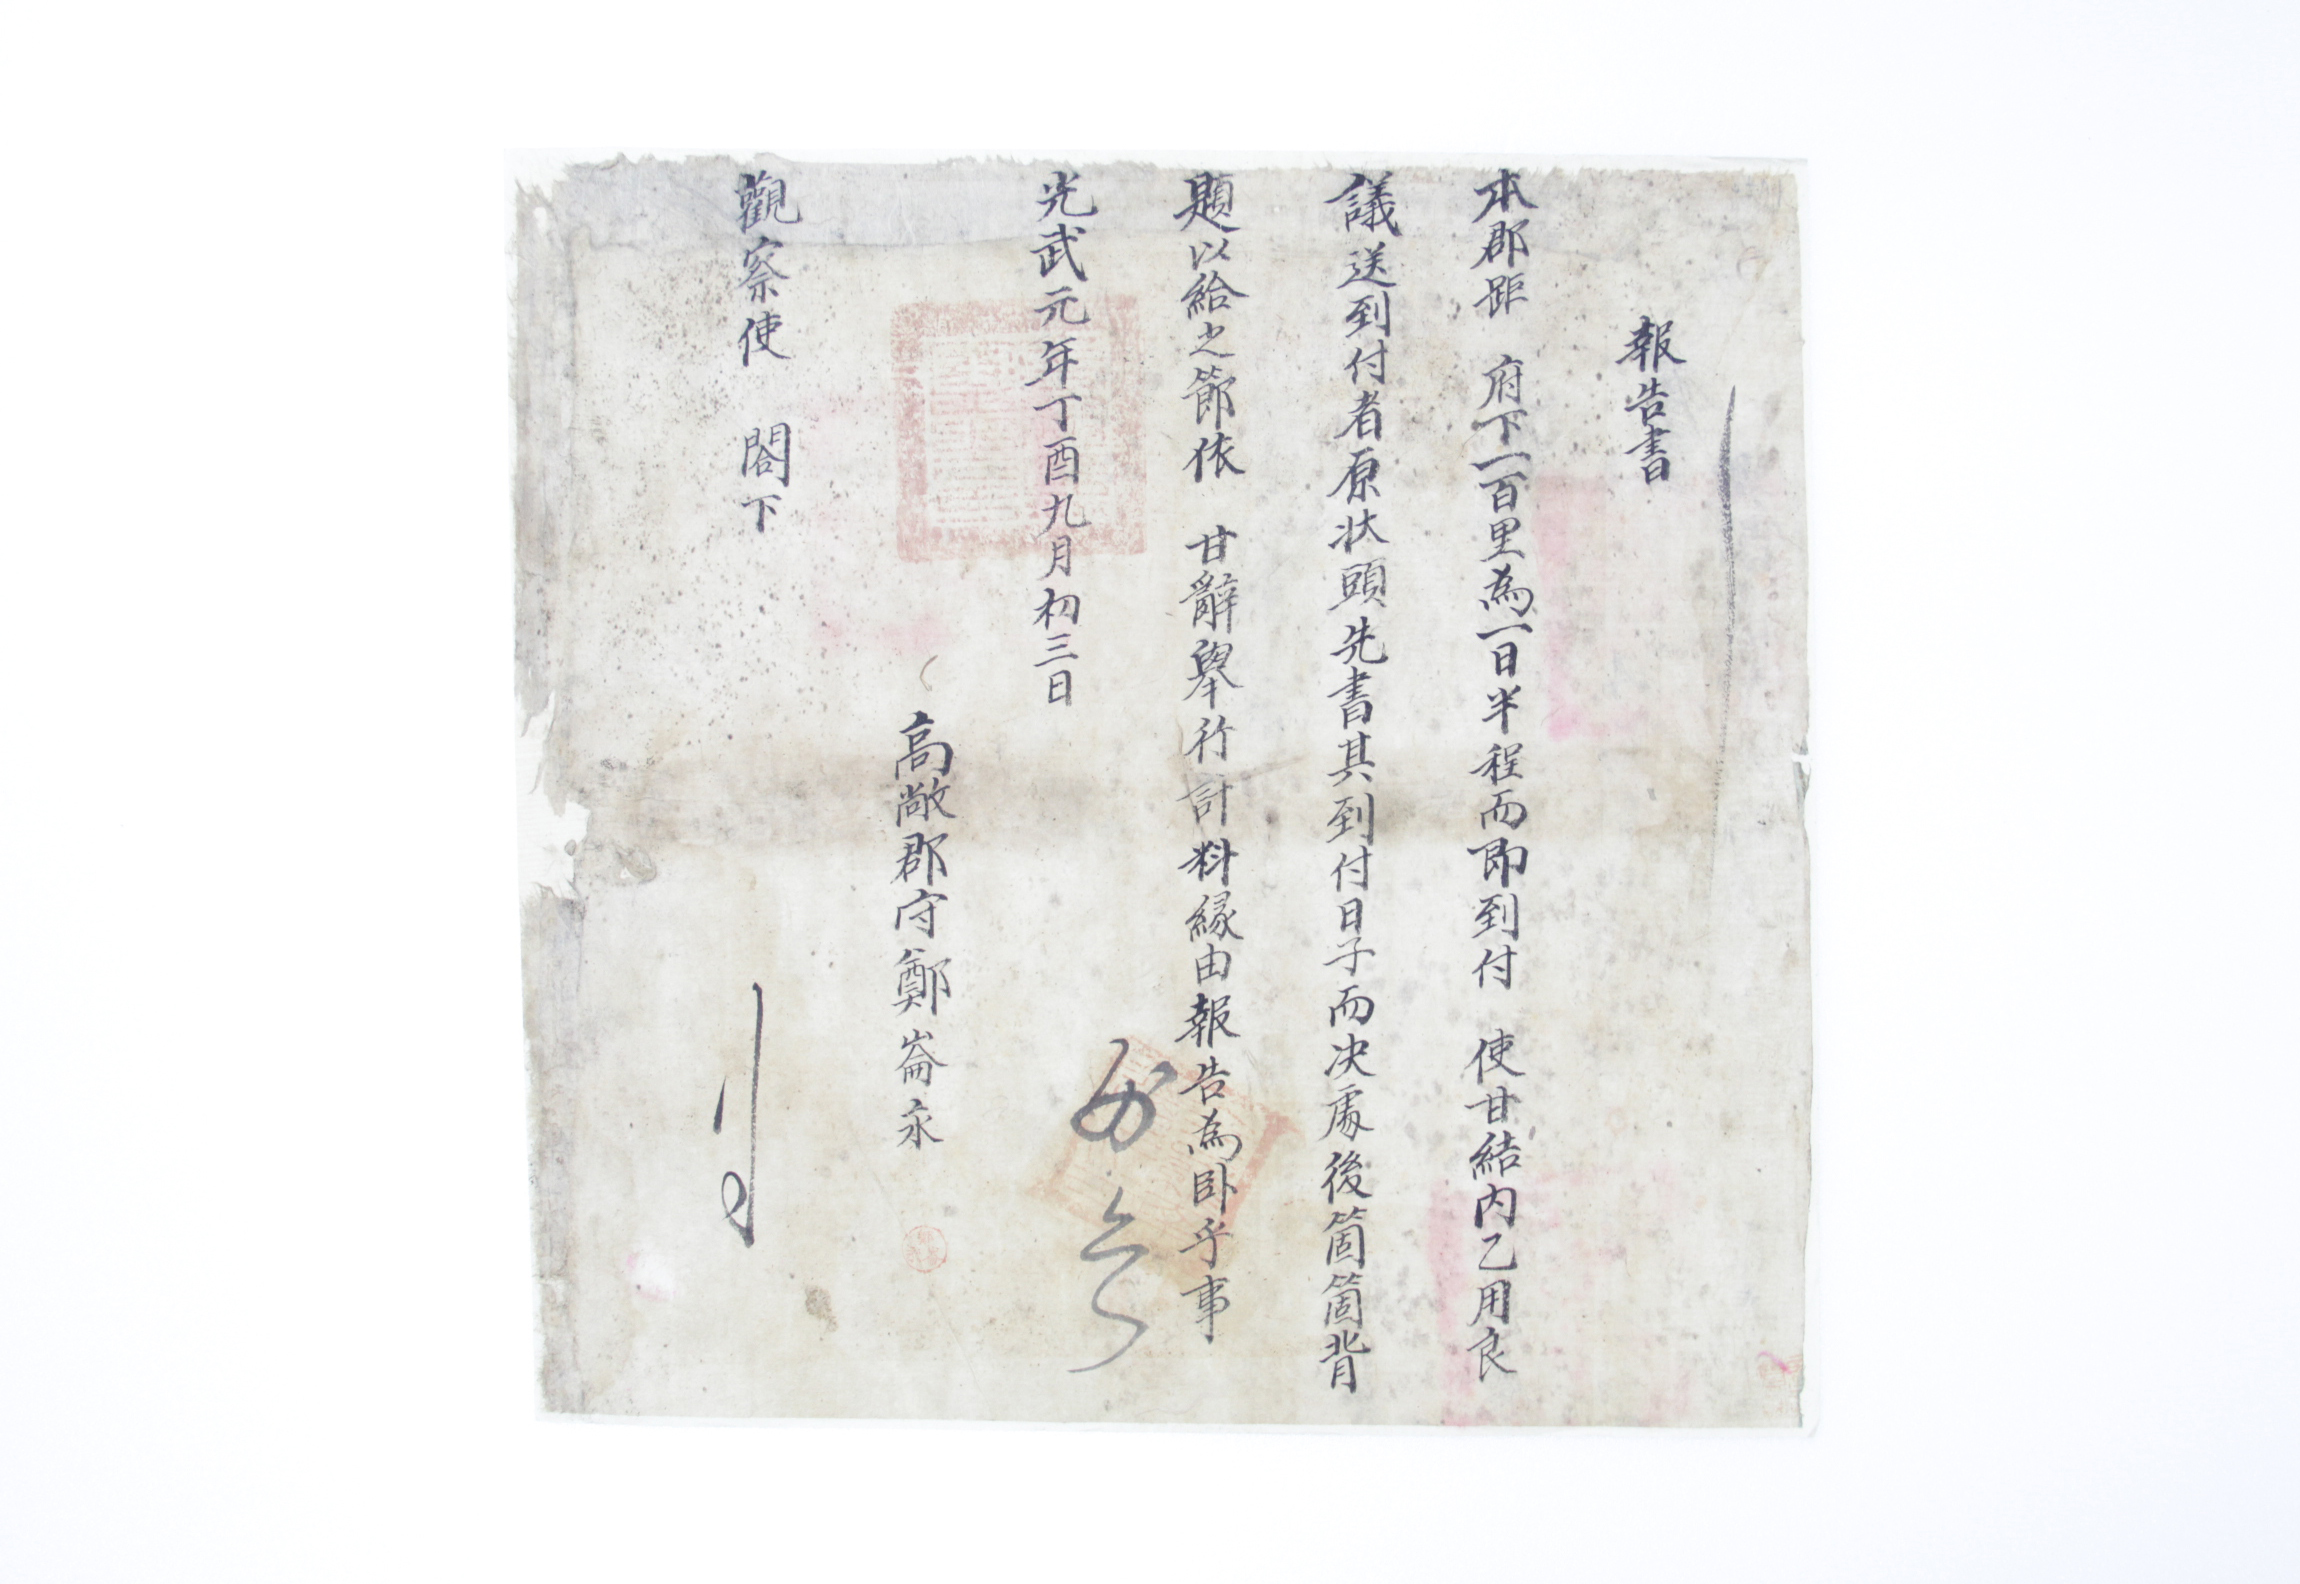 報告書
本郡距 府下一百里為一日半程而即到付 使甘結內乙用良
議送到付者原狀頭先書其到付日子而决處後箇箇背
題以給之節依 甘辭擧行計料緣由報告為卧乎事
光武元年丁酉九月初三日
高敞郡守鄭崙永
觀察使 閤下